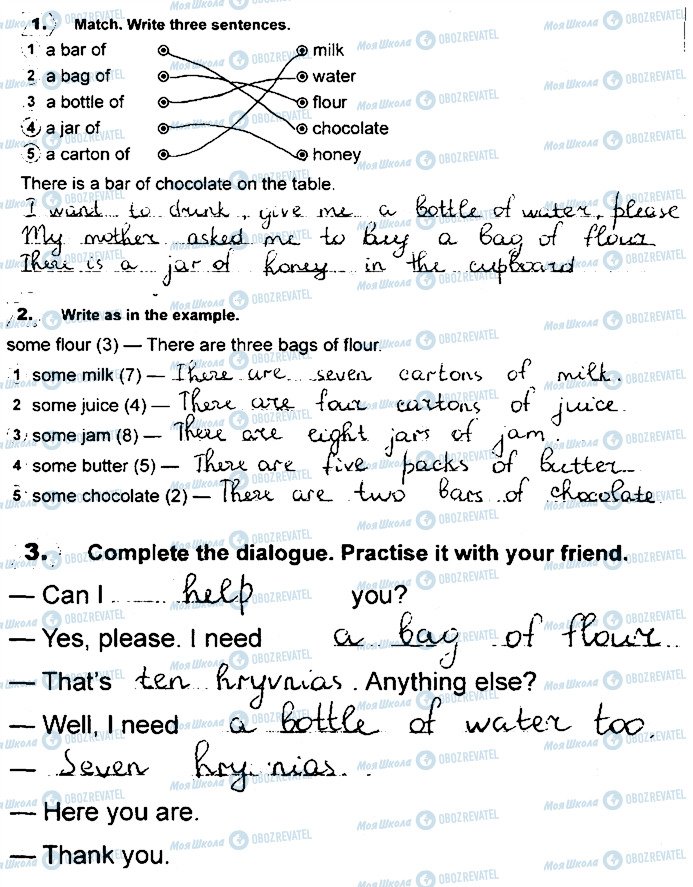 1. Match. Write three sentences.
1 a bar of milk
2 a bag of water
3 a bottle of flour
4 a jar of chocolate
5 a carton of honey
There is a bar of chocolate on the table.
I want to drunk, give me a bottle of water, please
My mother asked me to buy a bag of flour
There is a jar of honey in the cupboard
2. Write as in the example.
some flour (3) — There are three bags of flour.
1 some milk (7) — There are seven cartons of milk.
2 some juice (4) — There are four cartons of juice.
3 some jam (8) — There are eight jars of jam.
4 some butter (5) — There are five packs of butter
5 some chocolate (2) — There are two bars of chocolate.
3. Complete the dialogue. Practise it with your friend.
— Can I help you?
— Yes, please. I need a bag of flour
— That's ten hryvnias. Anything else?
— Well, I need a bottle of water too.
— Seven hry nias.
— Here you are.
— Thank you.
Моя Школа OBOZREVATEL